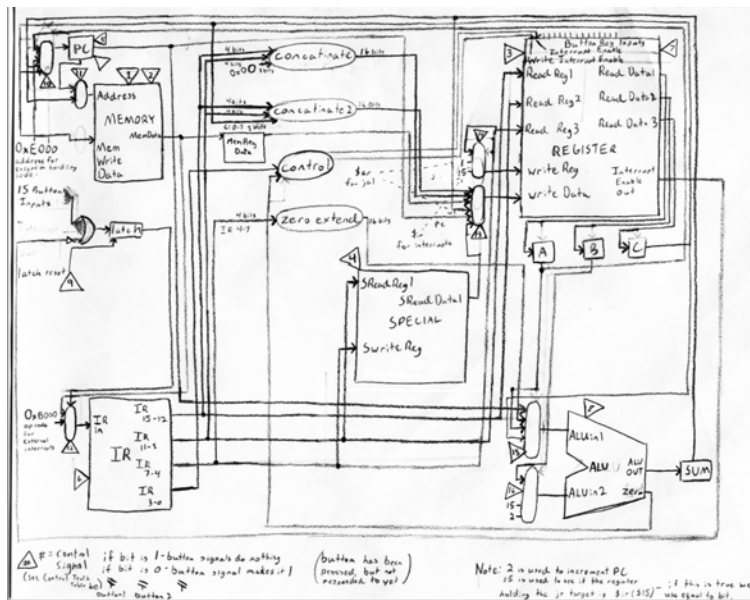 PC
Address
MEMORY
MemData
Mem
Write
Data
0xE000
address for
handling
code
15 Button
Inputs
latch
latch reset
9
4 bits
concatinate
16 bits
0x00
4 bits
concatinate2
16 bits
MemReg
Data
control
4 bits
zero extend
16 bits
IR 4-7
$ar
for jal
PC
for interrupts
Button Reg Inputs
Interrupt Enable
Write Interrupt Enable
3
7
Read Reg1
Read Data1
Read Reg2
Read Data2
Read Reg3
Read Data 3
REGISTER
Write Reg
Interrupt
Enable
Out
Write Data
A
B
C
4
SReadReg1
SReadData1
SPECIAL
SwriteReg
0xB000
opcode
for
external
interrupts
IR
in
IR
15-12
IR
11-8
IR
IR
7-4
IR
3-0
6
8
ALUin1
ALU
ALU
OUT
SUM
ALUin2
zero
14
15
2
# = Control
Signal
(see Control Truth
Table)
if bit is 1-button signals do nothing
if bit is 0-button signal makes it 1
Button1 Button 2
(button has been
pressed, but not
responded to yet)
Note: 2 is used to increment PC
15 is used to see if the register
holding the jr target is $ir($15) - if this is true we
use equal to bit.